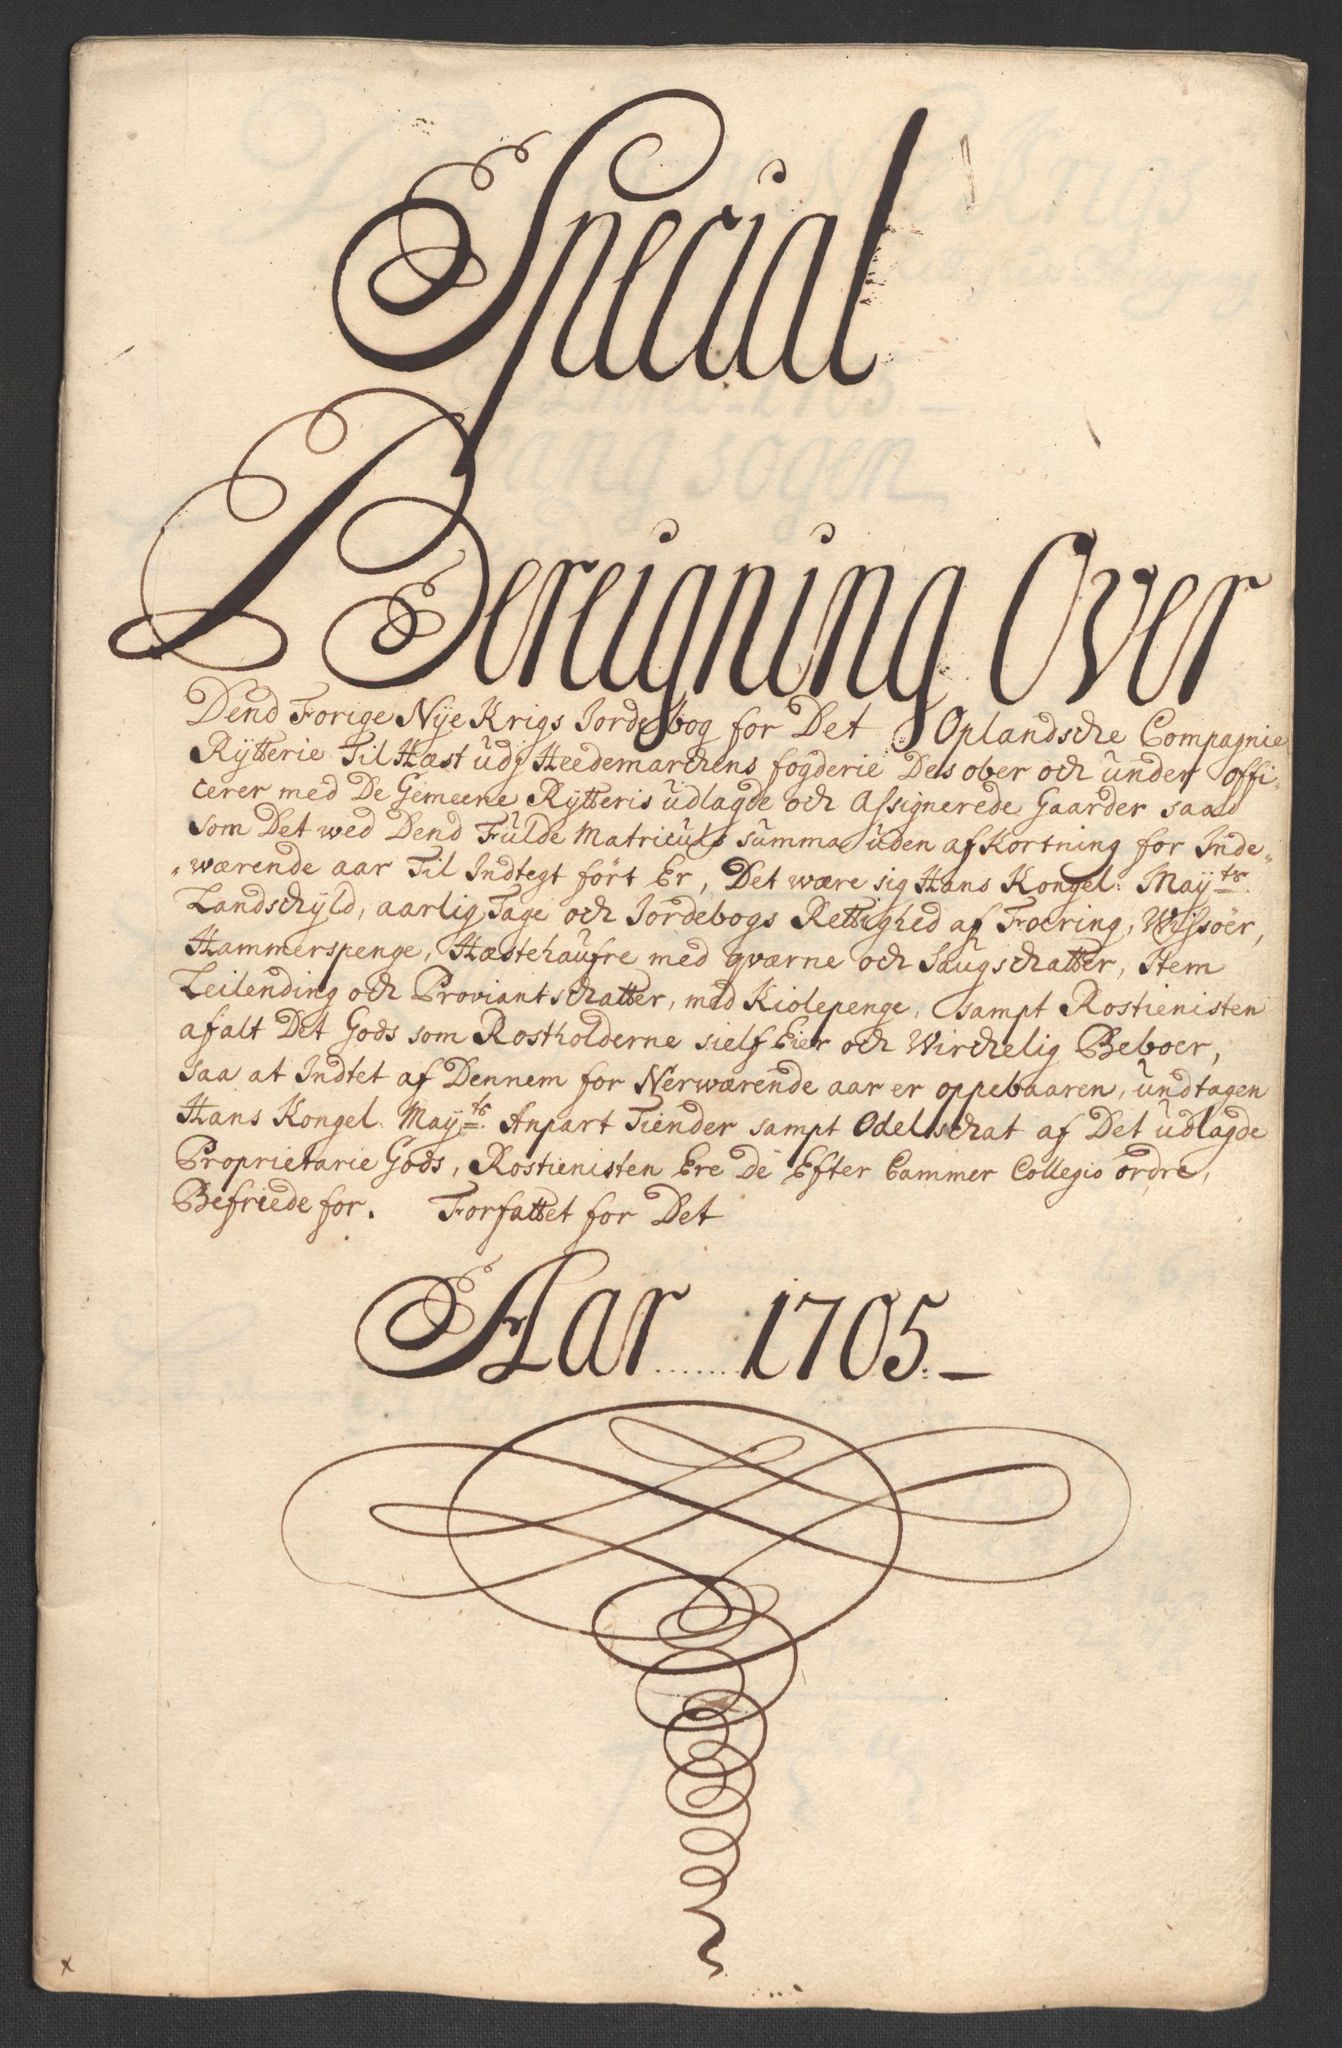 Special
Bereigning Over
Dend Forige Nÿe Krigs Jordebog for Det Oplandsche Compagnie
Rÿtterie Til Hæst udj Heedemarchens fogderie Des ober och under offi-
cerer med De Gemeene Rÿtteris udlagde och Assignerede Gaarder saa
som Det wed Dend Fulde Matriculs summa uden afkortning for Inde-
wærende aar Til Indtegt fört Er, Det wære sig Hans Kongel: Maÿts:
Landschÿld, aarlig Tage och Jordebogs Rettighed af Foering, Wissöer,
Hammerspenge, Hæstehaufre med qværne och Saugschatter, Item
Leilending och Proviantschatter, med Kiolepenge, sampt Rostienisten
af alt Det Gods som Rostholderne sielf Eier och Wirchelig Beboer,
saa at Indtet af Dennem for Nerwærende aar er oppebaaren, undtagen
Hans Kongel. Maÿts: Anpart Tiender sampt Odelschat af Det udlagde
Proprietarie Gods, Rostienisten Ere De Efter Cammer Collegio ordre,
Befriede for. Forfattet for Det
Aar 1705.
x